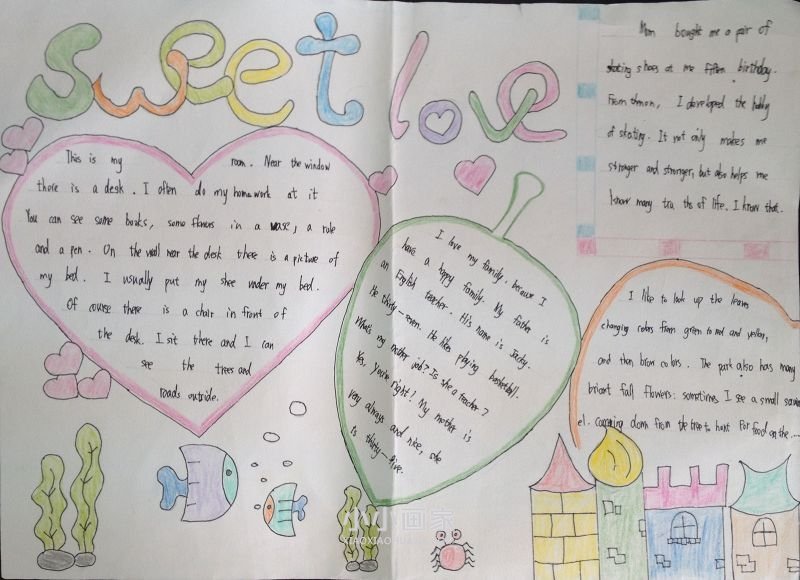 sweet love
This is my room. Near the window
there is a desk. I often do my homework at it
You can see some books, some flowers in a vase, a rule
and a pen. On the wall near the desk there is a picture of
my bed. I usually put my shee under my bed.
Of course there is a chair in front of
the desk. I sit there and I can
see the trees and
roads outside.
I love my family, because I
have a happy family. My father is
an English teacher. His name is Jacky.
He thirty-seven. He likes playing basketball.
What's my mother job? Is she a teacher?
Yes, you're right! My mother is
very always and nice, she
is thirty-five.
Mom bought me a pair of
skating shoes at me fiften birthday.
From thmon, I developed the hobby
of skating. It not only makes me
stronger and stronger, but also helps me
know many tru ths of life. I know that.
I like to look up the leaves
changing colors from green to red and yellow,
and then brown colors. The park also has many
briant fall flowers: sometimes I see a small
el. comming down from the tree to hunt for food on the....
小小画家
XIAOXIAOHUAJIA